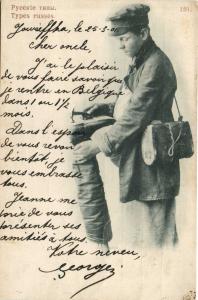 Русскіе типы.
Types russes.
191.
Jouzeffka, le 25-5-01
Cher oncle,
J'ai le plaisir
de vous faire savoir que
je rentre en Belgique
dans 1 ou 1½
mois.
Dans l'espoir
de vous revoir
bientôt, je
vous embrasse
tous.
Jeanne me
prie de vous
présenter ses
amitiés à tous.
Votre neveu,
George